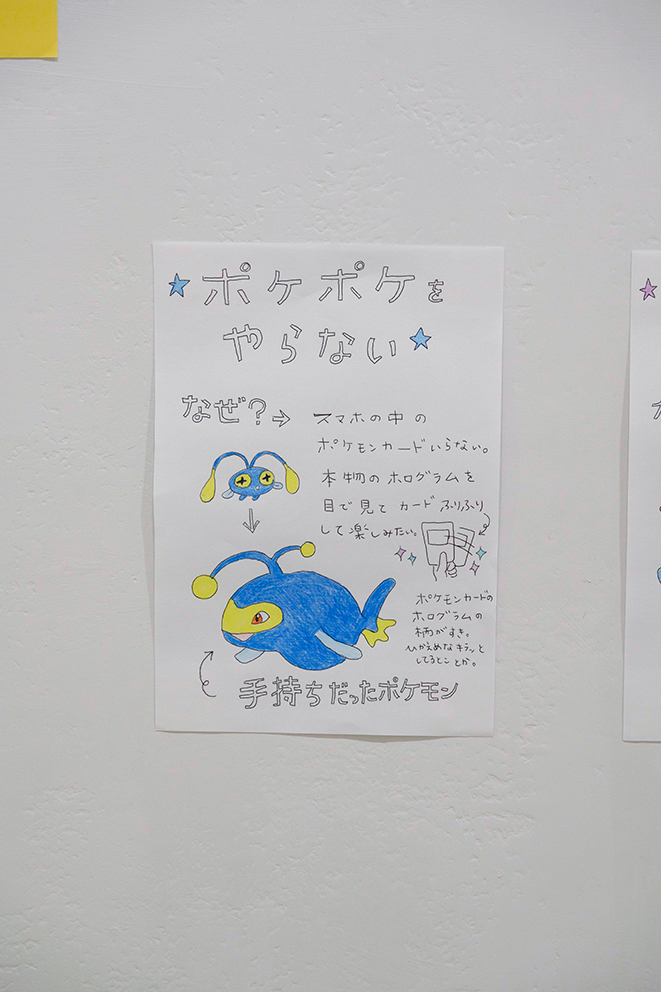 ポケポケを
やらない
なぜ?→
スマホの中の
ポケモンカードいらない。
本物のホログラムを
目で見てカードふりふり
して楽しみたい。
ポケモンカードの
ホログラムの
柄がすき。
ひかえめなキラッと
してるとことか。
手持ちだったポケモン